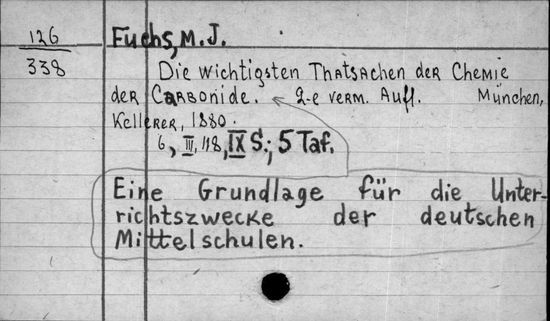 126
338
Fuchs, M. J.
Die wichtigsten Thatsachen der Chemie
der Carbonide. 2-e verm. Aufl. München,
Kellerer, 1880.
6, III, 118, IX S.; 5 Taf.
Eine Grundlage für die Unter-
richtszwecke der deutschen
Mittelschulen.